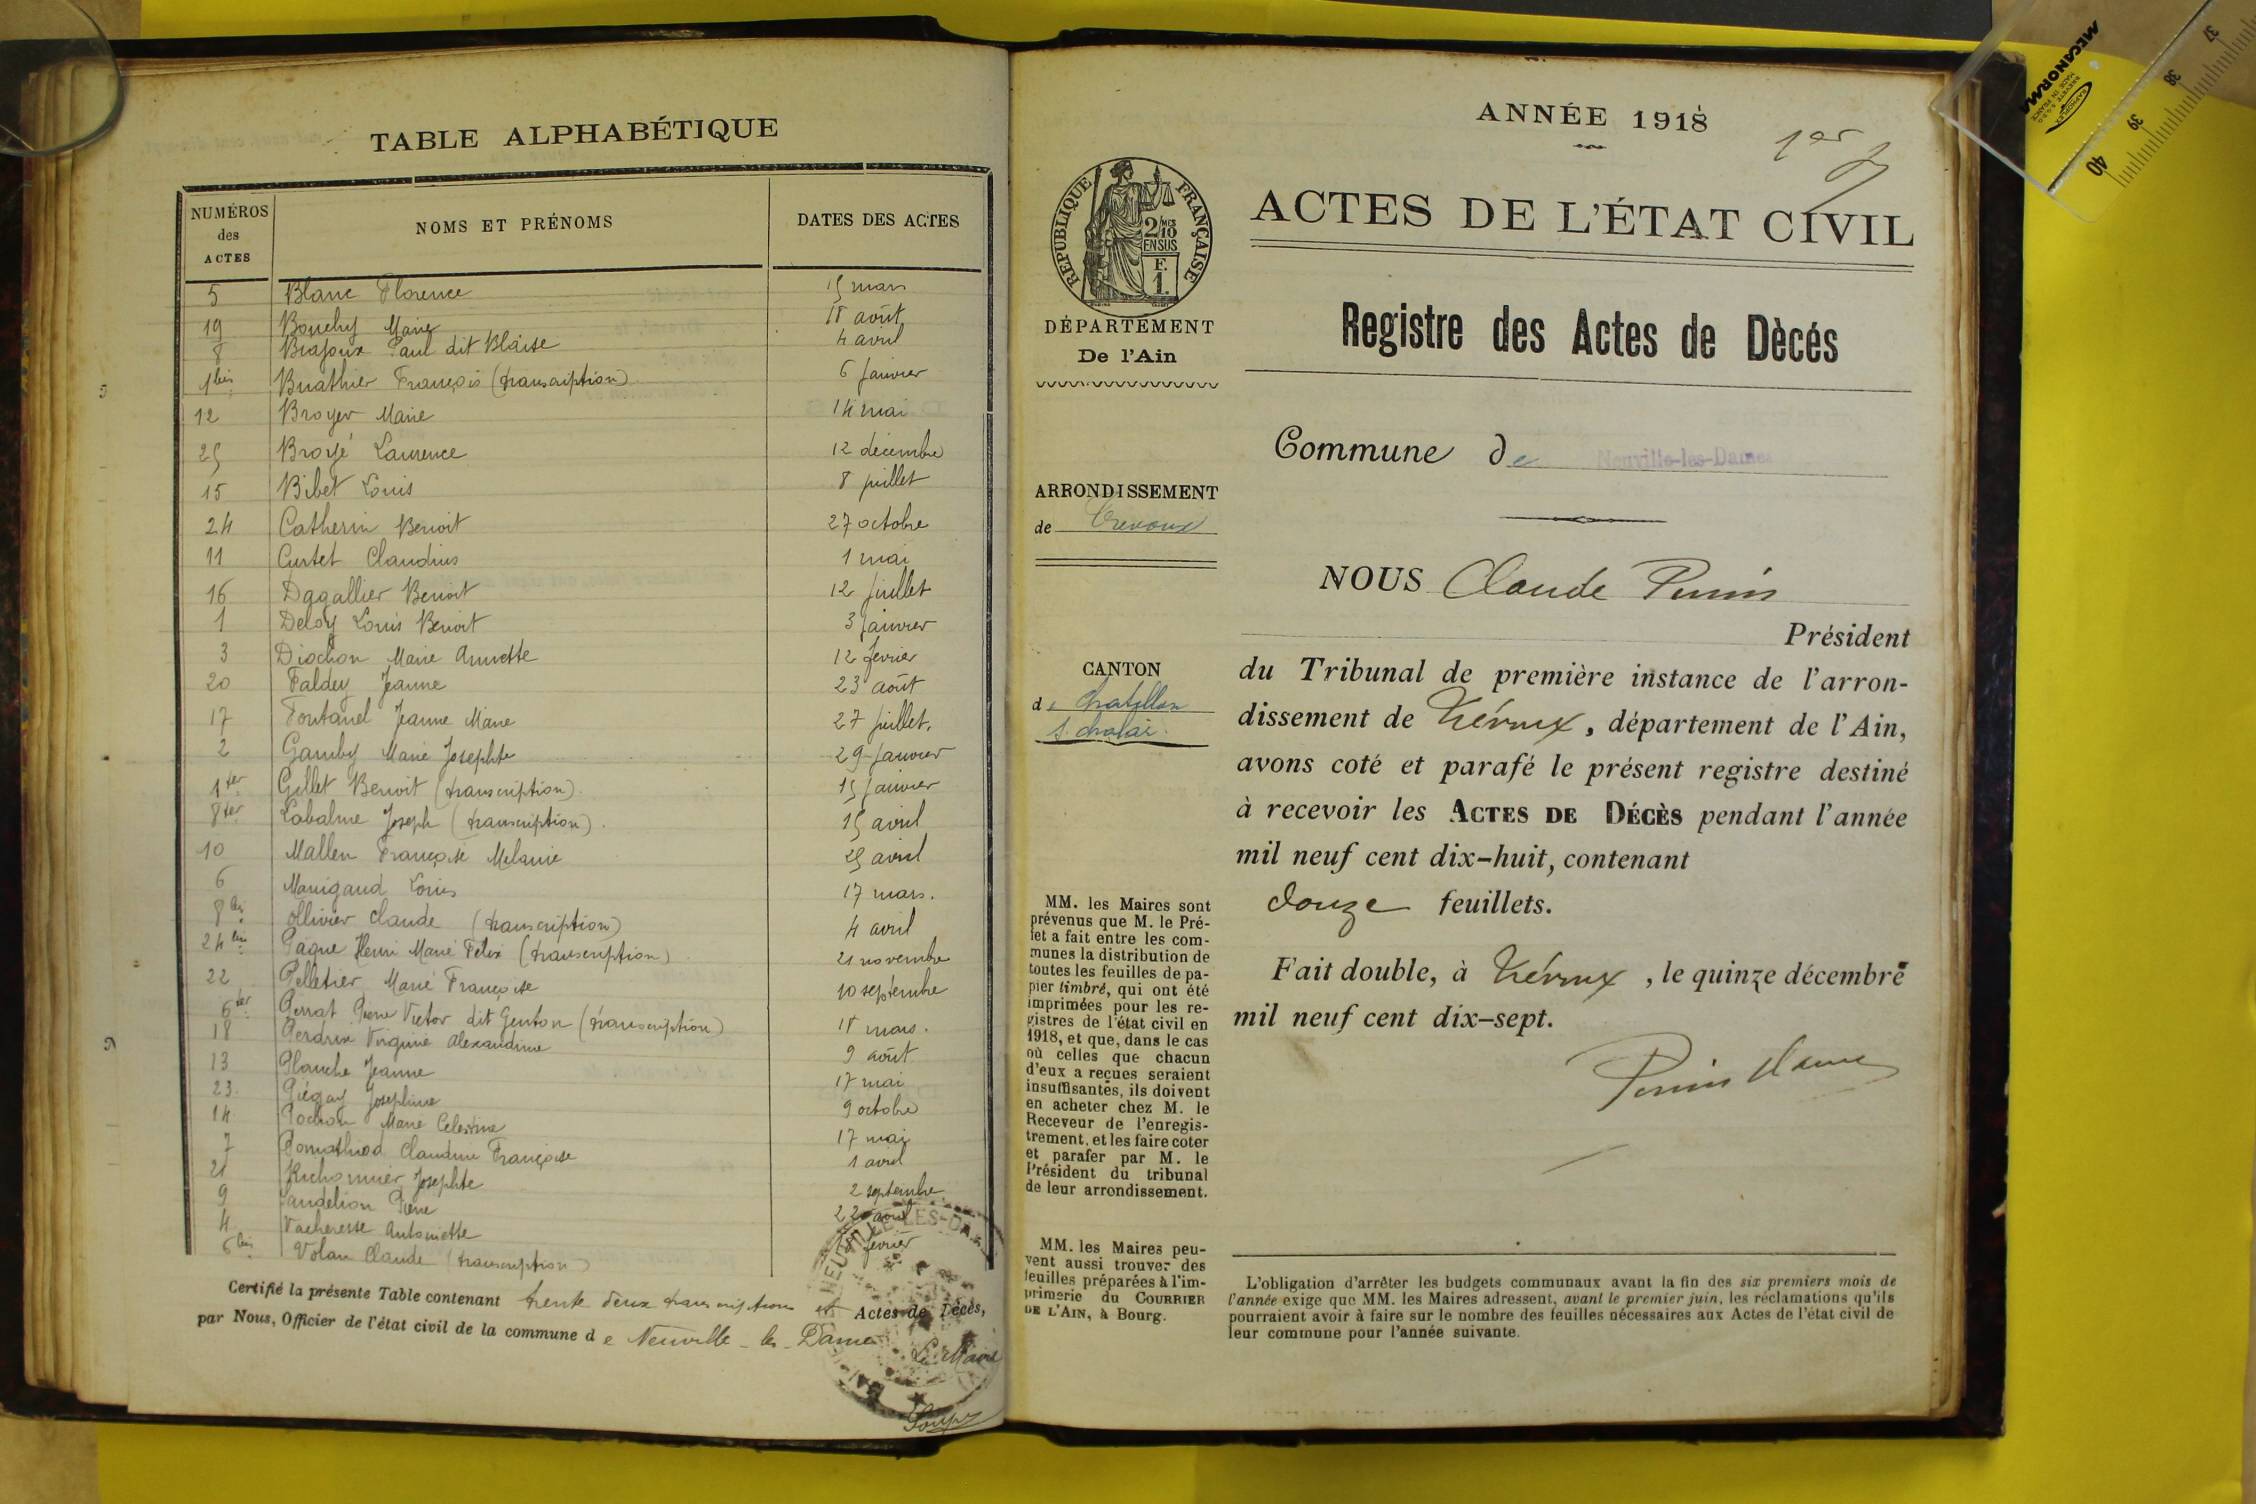 TABLE ALPHABÉTIQUE
NUMÉROS des ACTES
NOMS ET PRÉNOMS
DATES DES ACTES
5 Blanc Florence 15 mars
19 Bouchy Marie 18 août
8 Brajoux Paul dit Blaise 4 avril
1 bis Buathier François (transcription) 6 janvier
12 Broyer Marie 14 mai
25 Broyé Laurence 12 décembre
15 Bibet Louis 8 juillet
24 Catherin Benoit 27 octobre
11 Curtet Claudius 1 mai
16 Dagallier Benoit 12 juillet
1 Deloy Louis Benoit 3 janvier
3 Diochon Marie Annette 12 février
20 Faldey Jeanne 23 août
17 Fontanel Jeanne Marie 27 juillet.
2 Gamby Marie Josephte 29 janvier
1 ter Gillet Benoit (transcription) 15 janvier
8 ter Labalme Joseph (transcription). 15 avril
10 Mallen Françoise Melanie 25 avril
6 Manigand Louis 17 mars.
8 bis Ollivier Claude (transcription) 4 avril
24 bis Pagne Henri Marie Félix (transcription) 21 novembre
22 Pelletier Marie Françoise 10 septembre
6 ter Perrat Pierre Victor dit Genton (transcription) 18 mars.
18 Perdrix Virginie Alexandrine 9 août
13 Planche Jeanne 17 mai
23. Piégay Josephine 9 octobre
14 Pochon Marie Celestine 17 mai
7 Pomathiod Claudine Françoise 1 avril
21 Richonnier Josephte 2 septembre
9 andelion Pierre 22 avril
4 Vacheresse Antoinette février
6 bis Volan Claude (transcription)
Certifié la présente Table contenant trente deux transcriptions et Actes de Décès,
par Nous, Officier de l'état civil de la commune de Neuville-les-Dames
Le Maire
NEUVILLE-LES-DA
ANNÉE 1918
1er
RÉPUBLIQUE FRANÇAISE
2/10 MES
EN SUS
F.
1.
DÉPARTEMENT
De l'Ain
ARRONDISSEMENT
de Trevoux
CANTON
de Chatillon
s. chalar.
MM. les Maires sont
prévenus que M. le Pré-
fet a fait entre les com-
munes la distribution de
toutes les feuilles de pa-
pier timbré, qui ont été
imprimées pour les re-
gistres de l'état civil en
1918, et que, dans le cas
où celles que chacun
d'eux a reçues seraient
insuffisantes, ils doivent
en acheter chez M. le
Receveur de l'enregis-
trement, et les faire coter
et parafer par M. le
Président du tribunal
de leur arrondissement.
MM. les Maires peu-
vent aussi trouver des
feuilles préparées à l'im-
primerie du COURRIER
DE L'AIN, à Bourg.
ACTES DE L'ÉTAT CIVIL
Registre des Actes de Dècés
Commune de Neuville-les-Dames
NOUS Claude Perrin
Président
du Tribunal de première instance de l'arron-
dissement de Trévoux, département de l'Ain,
avons coté et parafé le présent registre destiné
à recevoir les ACTES DE DÉCÈS pendant l'année
mil neuf cent dix-huit, contenant
douze feuillets.
Fait double, à Trévoux, le quinze décembre
mil neuf cent dix-sept.
Perrin Claude
L'obligation d'arrêter les budgets communaux avant la fin des six premiers mois de
l'année exige que MM. les Maires adressent, avant le premier juin, les réclamations qu'ils
pourraient avoir à faire sur le nombre des feuilles nécessaires aux Actes de l'état civil de
leur commune pour l'année suivante.
MECANORMA
37
38
39
40